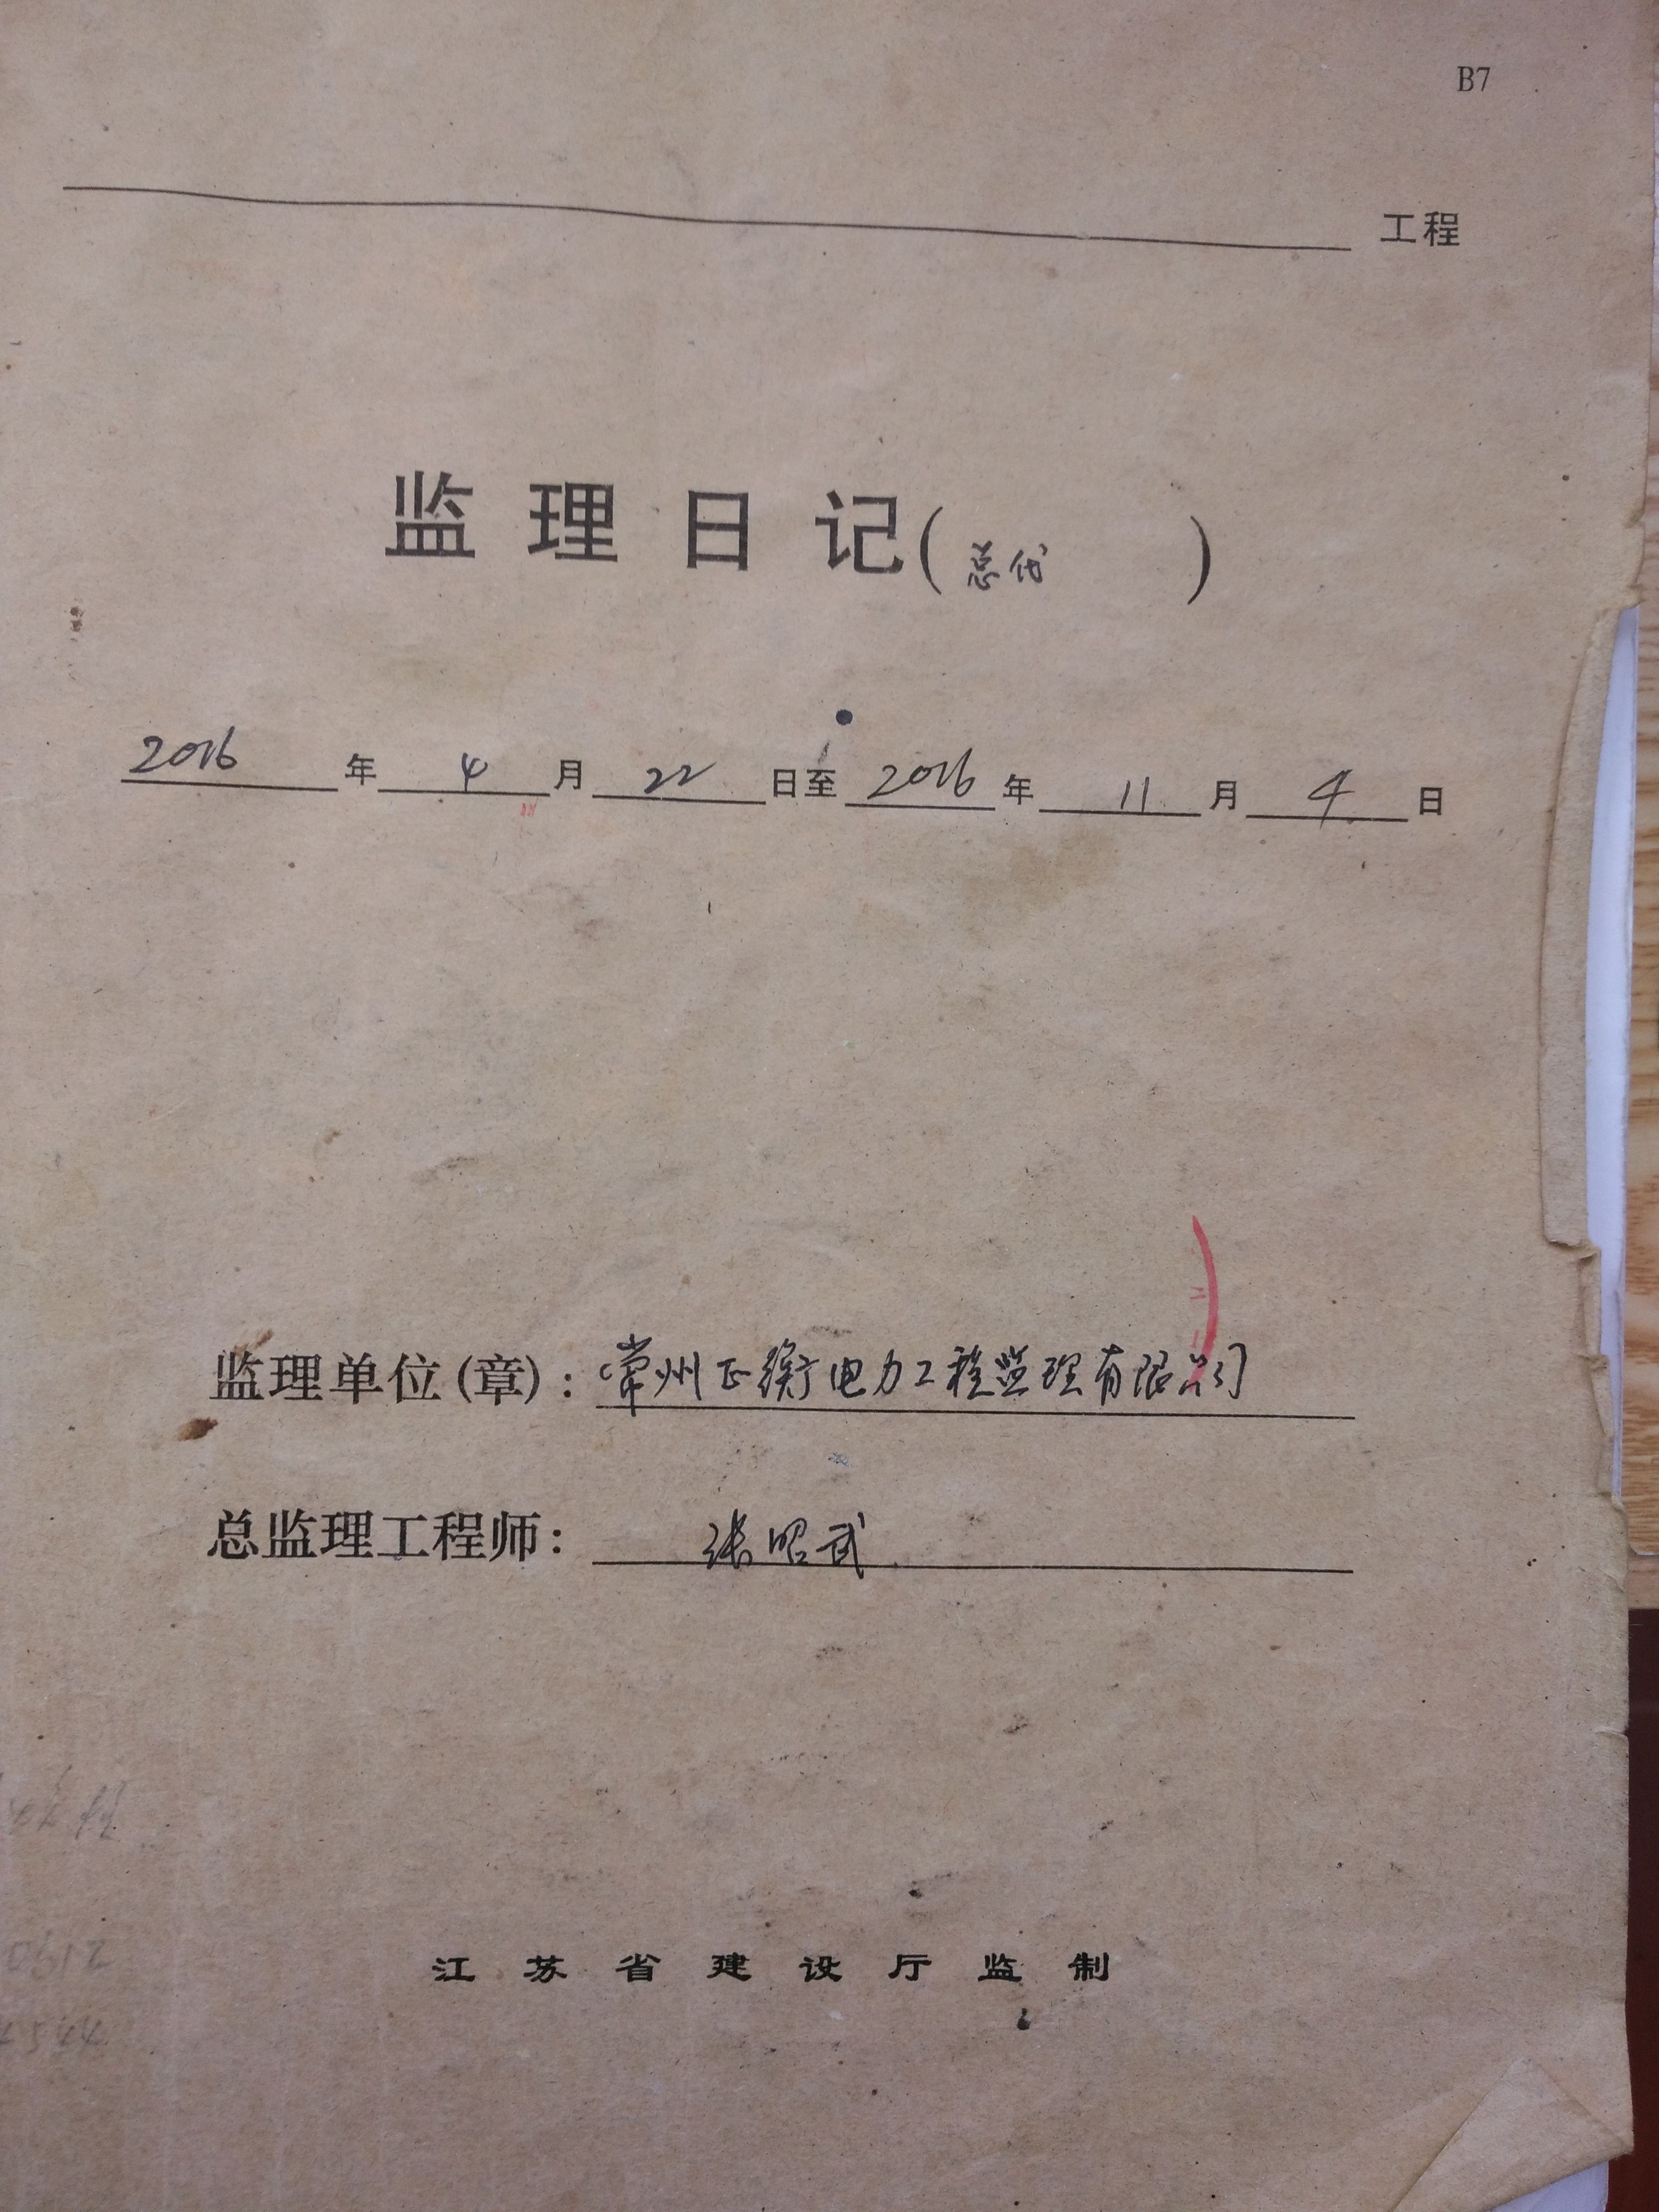 B7
工程
监理日记(总代)
2016年4月22日至2016年11月4日
监理单位(章):常州正衡电力工程监理有限公司
总监理工程师:张昭武
江苏省建设厅监制